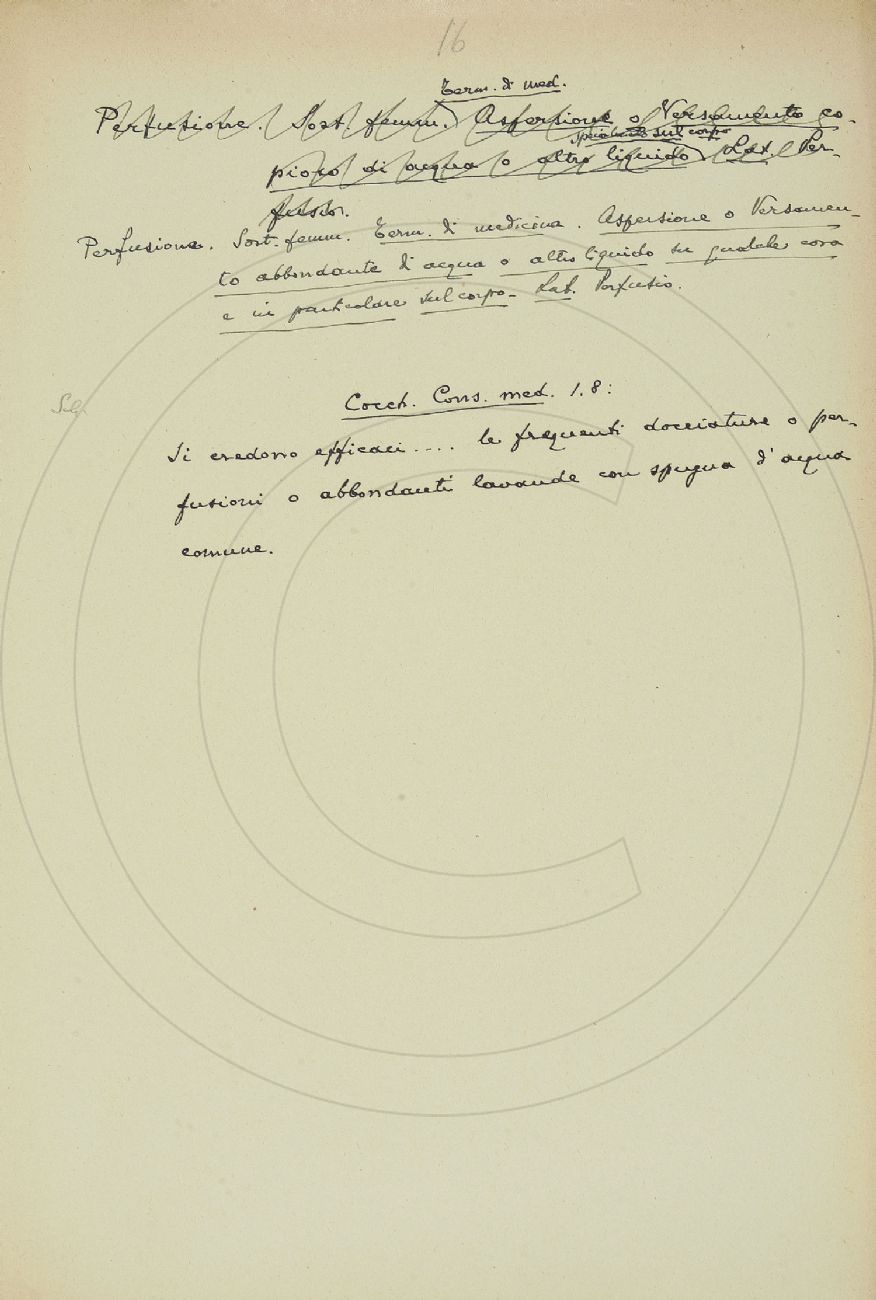 16
Term. di med.
Perfusione. Sost. femm. Aspersione o Versamento co-
specialmente sul corpo
pioso di acqua o altro liquido. Lat. Per-
fusio.
Perfusione. Sost. femm. Term. di medicina. Aspersione o Versamen-
to abbondante di acqua o altro liquido su qualche cosa
e in particolare sul corpo. Lat. Perfusio.
Cocch. Cons. med. 1. 8:
Si credono efficaci .... le frequenti docciature o per-
fusioni o abbondanti lavande con spugna d'acqua
comune.